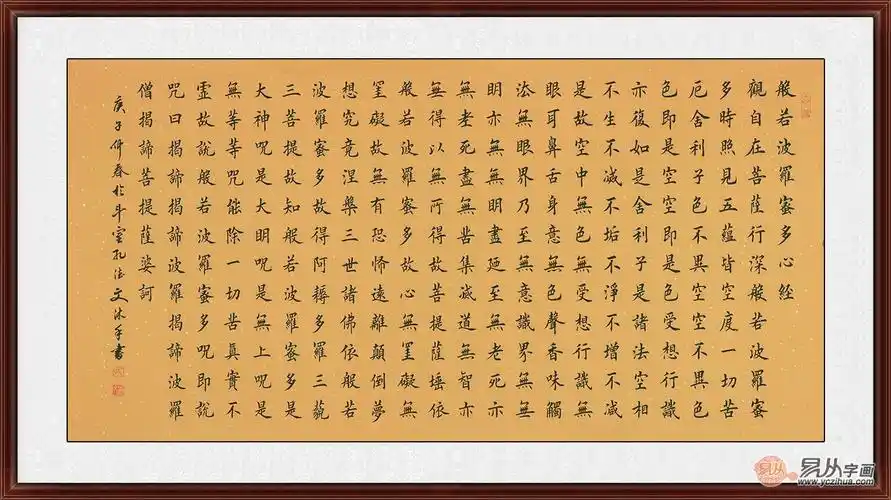 般若波羅蜜多心經
觀自在菩薩行深般若波羅蜜
多時照見五蘊皆空度一切苦
厄舍利子色不異空空不異色
色即是空空即是色受想行識
亦復如是舍利子是諸法空相
不生不滅不垢不淨不增不減
是故空中無色無受想行識無
眼耳鼻舌身意無色聲香味觸
法無眼界乃至無意識界無無
明亦無無明盡廼至無老死亦
無老死盡無苦集滅道無智亦
無得以無所得故菩提薩埵依
般若波羅蜜多故心無罣礙無
罣礙故無有恐怖遠離顛倒夢
想究竟涅槃三世諸佛依般若
波羅蜜多故得阿耨多羅三藐
三菩提故知般若波羅蜜多是
大神呪是大明呪是無上呪是
無等等呪能除一切苦真實不
虛故說般若波羅蜜多呪即說
咒曰揭諦揭諦波羅揭諦波羅
僧揭諦菩提薩婆訶
庚子仲春於斗室孔法文沐手書
易从字画
www.yczihua.com